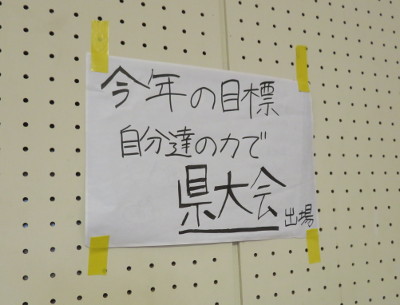 今年の目標
自分達の力で
県大会出場